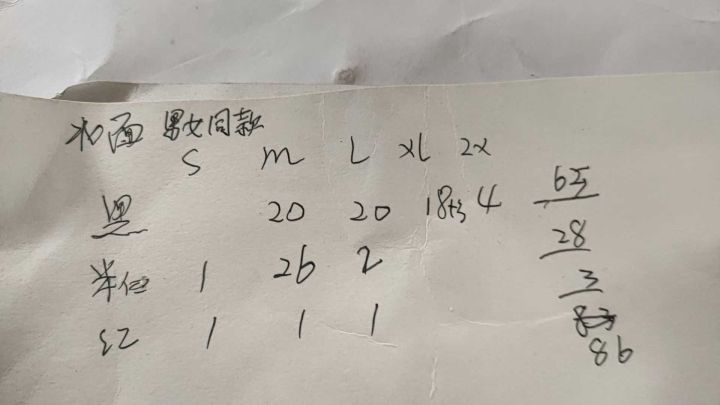 面 男女同款
S M L XL 2X
黑 20 20 18+3 4 65
单位 1 26 2 28
红 1 1 1 3
83
86